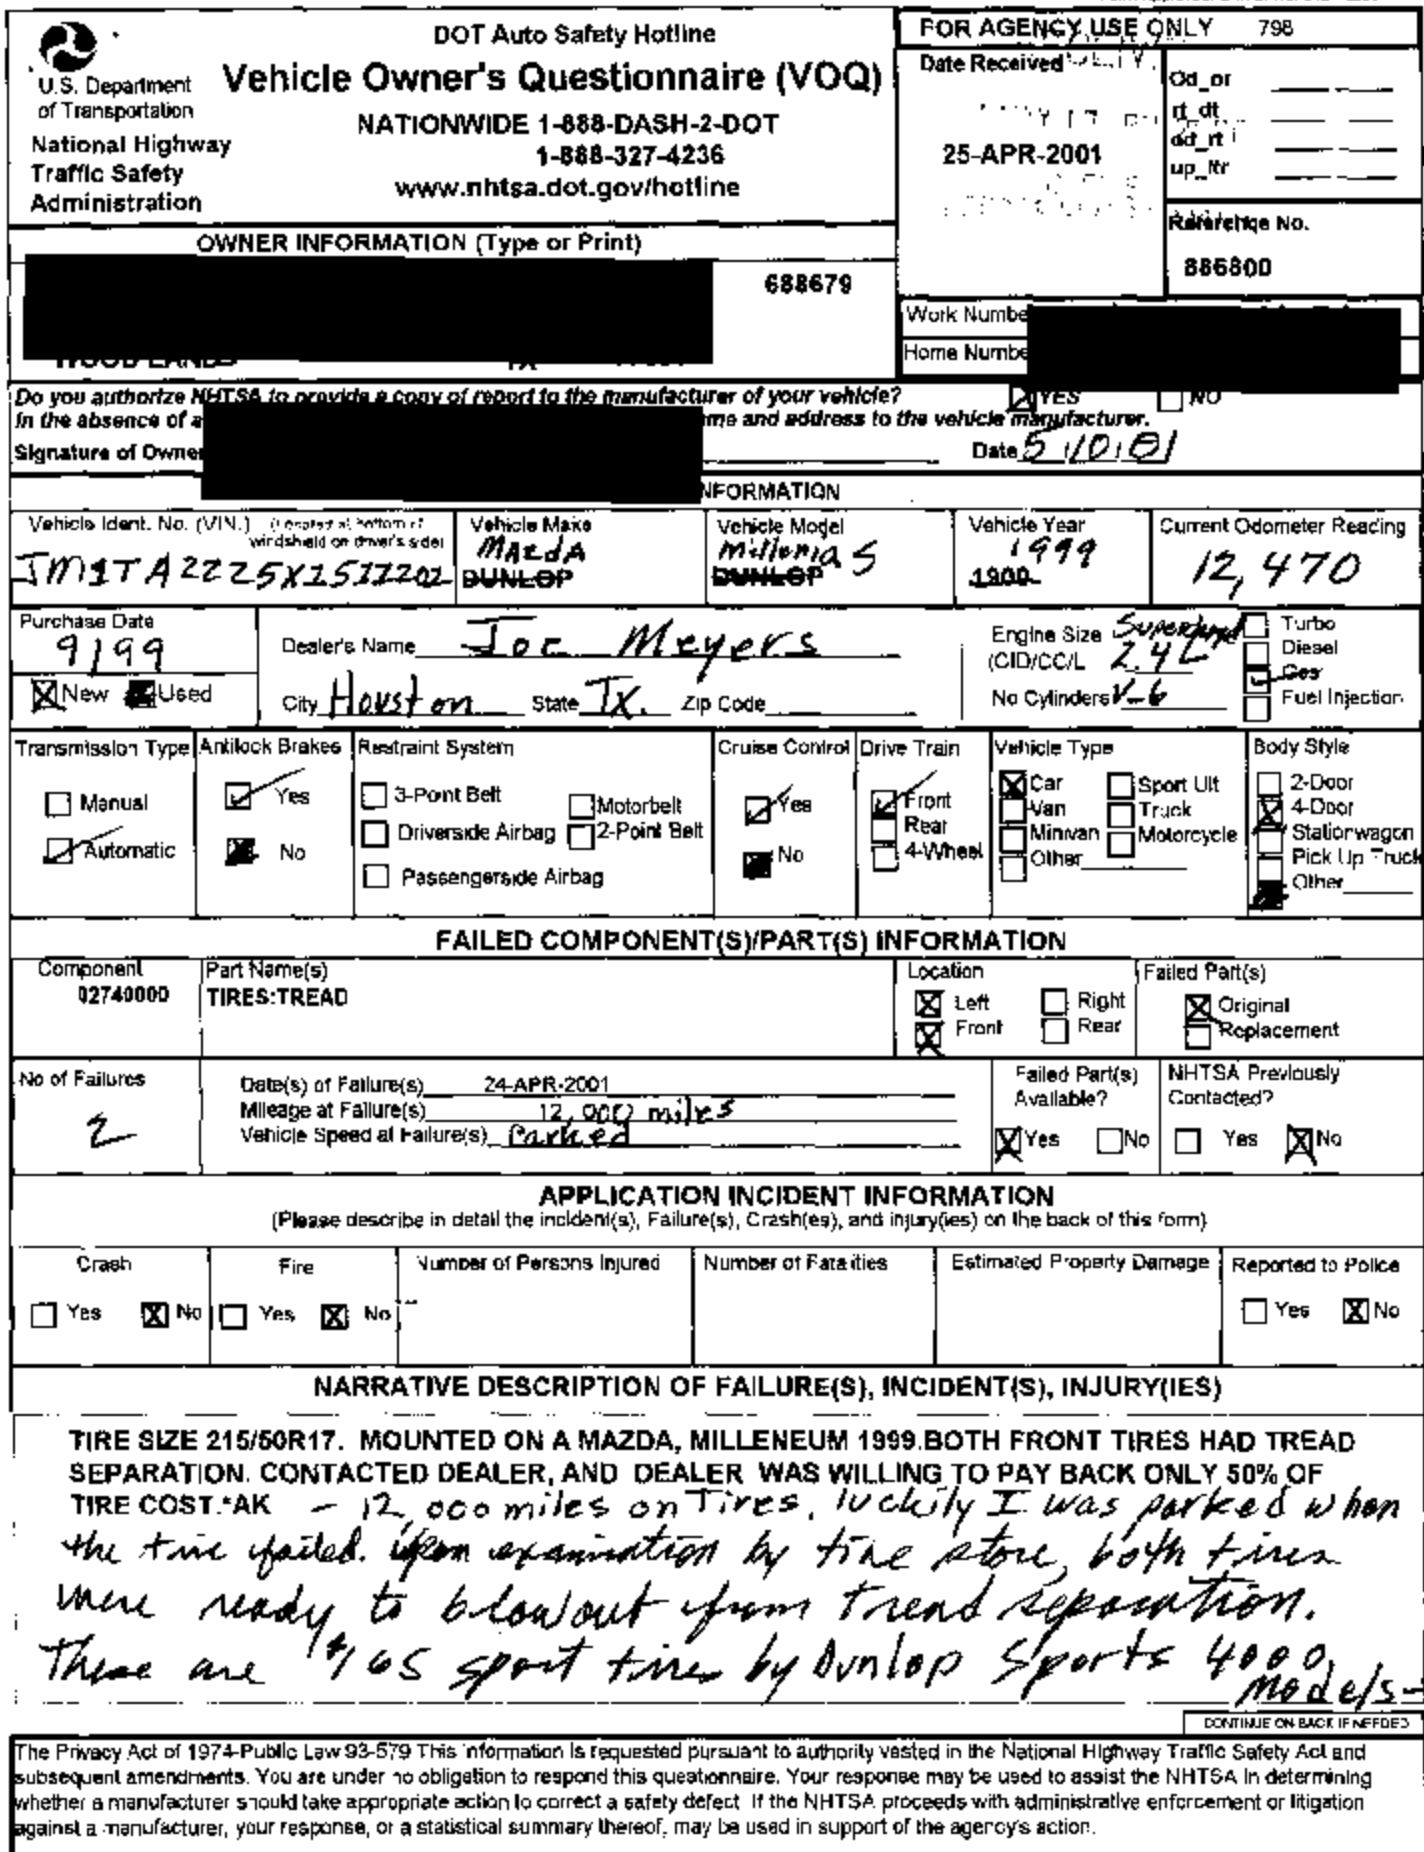 DOT Auto Safety Hotline
Vehicle Owner's Questionnaire (VOQ)
NATIONWIDE 1-888-DASH-2-DOT
1-888-327-4236
www.nhtsa.dot.gov/hotline
U.S. Department
of Transportation
National Highway
Traffic Safety
Administration
FOR AGENCY USE ONLY 798
Date Received
25-APR-2001
Od_or
rt_dt
od_rt
up_ltr
Reference No.
886800
OWNER INFORMATION (Type or Print)
688679
Work Numbe
Home Numbe
Do you authorize NHTSA to provide a copy of report to the manufacturer of your vehicle? YES NO
In the absence of a me and address to the vehicle manufacturer.
Signature of Owner Date 5/10/01
NFORMATION
Vehicle Ident. No. (VIN.) (Located at bottom of windshield on driver's side)
Vehicle Make
MAzdA
DUNLOP
Vehicle Model
Millenia S
DUNLOP
Vehicle Year
1999
1900
Current Odometer Reading
12,470
Purchase Date
9/99
New Used
Dealer's Name Joe Meyers
City Houston State TX. Zip Code
Engine Size (CID/CC/L 2.4L
No Cylinders V-6
Turbo
Diesel
Gas
Fuel Injection
Transmission Type
Manual
Automatic
Antilock Brakes
Yes
No
Restraint System
3-Point Belt
Motorbelt
Driverside Airbag
2-Point Belt
Passengerside Airbag
Cruise Control
Yes
No
Drive Train
Front
Rear
4-Wheel
Vehicle Type
Car
Sport Ult
Van
Truck
Minivan
Motorcycle
Other
Body Style
2-Door
4-Door
Stationwagon
Pick Up Truck
Other
FAILED COMPONENT(S)/PART(S) INFORMATION
Component
02740000
Part Name(s)
TIRES:TREAD
Location
Left Right
Front Rear
Failed Part(s)
Original
Replacement
No of Failures
2
Date(s) of Failure(s) 24-APR-2001
Mileage at Failure(s) 12,000 miles
Vehicle Speed at Failure(s) Parked
Failed Part(s)
Available?
Yes No
NHTSA Previously
Contacted?
Yes No
APPLICATION INCIDENT INFORMATION
(Please describe in detail the incident(s), Failure(s), Crash(es), and injury(ies) on the back of this form)
Crash
Yes No
Fire
Yes No
Number of Persons Injured
Number of Fatalities
Estimated Property Damage
Reported to Police
Yes No
NARRATIVE DESCRIPTION OF FAILURE(S), INCIDENT(S), INJURY(IES)
TIRE SIZE 215/50R17. MOUNTED ON A MAZDA, MILLENEUM 1999.BOTH FRONT TIRES HAD TREAD
SEPARATION. CONTACTED DEALER, AND DEALER WAS WILLING TO PAY BACK ONLY 50% OF
TIRE COST.*AK - 12,000 miles on Tires, luckily I was parked when
the tire failed. Upon examination by tire store, both tires
were ready to blowout from tread separation.
These are $165 sport tires by Dunlop Sports 4000
Models-
CONTINUE ON BACK IF NEEDED
The Privacy Act of 1974-Public Law 93-579 This information is requested pursuant to authority vested in the National Highway Traffic Safety Act and
subsequent amendments. You are under no obligation to respond this questionnaire. Your response may be used to assist the NHTSA in determining
whether a manufacturer should take appropriate action to correct a safety defect. If the NHTSA proceeds with administrative enforcement or litigation
against a manufacturer, your response, or a statistical summary thereof, may be used in support of the agency's action.